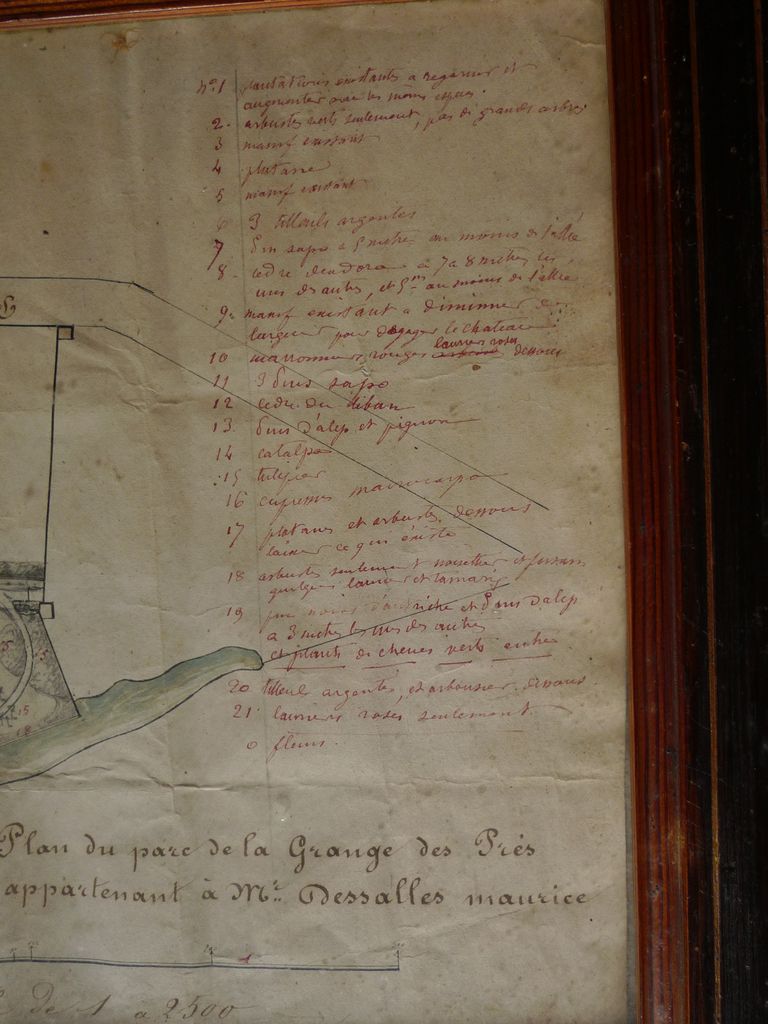 nº 1 plantations existants a regarnir et
augmenter avec les mêmes especes.
2. arbustes verts seulement, pas de grands arbres
3 massif existant
4 platane
5 massif existant
6 3 tilleuls argentés
7 Pins sapo a 5 metres au moins de l'allée
8. cedre deodora a 7 a 8 metres les
uns des autres, et 5 ms au moins de l'allée
9. massif existant a diminuer de
largeur pour degager le chateau
10 marronniers rouges lauriers roses dessous
11 3 Pins sapo
12 cedre du liban
13. Pins d'alep et pignon
14 catalpa
15 tulipier
16 cupressus macrocarpa
17 platanes et arbustes dessous
laisser ce qui existe
18 arbustes seulement noisettier et fusain
quelques laurier et tamaris
19 pin noirs d'autriche et Pins d'alep
a 3 metres les uns des autres
et plants de chenes verts entre
20 tilleuls argentés, et arbousier dessous
21. lauriers roses seulement
0 fleurs.
15
18
Plan du parc de la Grange des Prés
appartenant à Mr. Dessalles maurice
de 1 a 2500